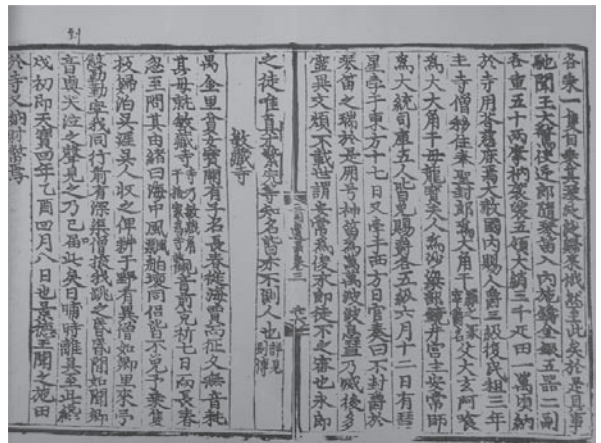 到
各乘一隻自乘其琴泛泛歸來俄然至此矣於是具事
馳聞王大驚使迎郎隨琴笛入內施鑄金銀五器二副
各重五十兩摩衲袈裟五領大綃三千疋田一萬頃納
於寺用答慈庥焉大赦國內賜人爵三級復民租三年
主寺僧移住奉聖封郎爲大角干羅之冡宰爵名父大玄阿喰
爲太大角干母龍寶夫人爲沙梁部鏡井宮主安常師
爲大統司庫五人皆免賜爵各五級六月十二日有彗
星孛于東方十七日又孛于西方日官奏曰不封爵於
琴笛之瑞於是冊号神笛爲萬萬波波息彗乃滅後多
靈異文煩不載世謂安常爲俊永郎徒不之審也永郎
三國遺事卷三
之徒唯真才繁完等知名皆亦不測人也詳見別傳
敏藏寺
禺金里貧女寶開有子名長春從海賈而征久無音耗
其母就敏藏寺寺乃敏藏角干捨家爲寺觀音前克祈七日而長春
忽至問其由緖曰海中風飄舶壞同侶皆不免予乘隻
板歸泊吳涯吳人收之俾耕于野有異僧如鄉里來弔
慰勤勤率我同行前有深渠僧掖我跳之昏昏間如聞鄉
音與哭泣之聲見之乃已屆此矣日晡時離吳至此纔
戌初即天寶四年乙酉四月八日也景德王聞之施田
於寺又納財幣焉